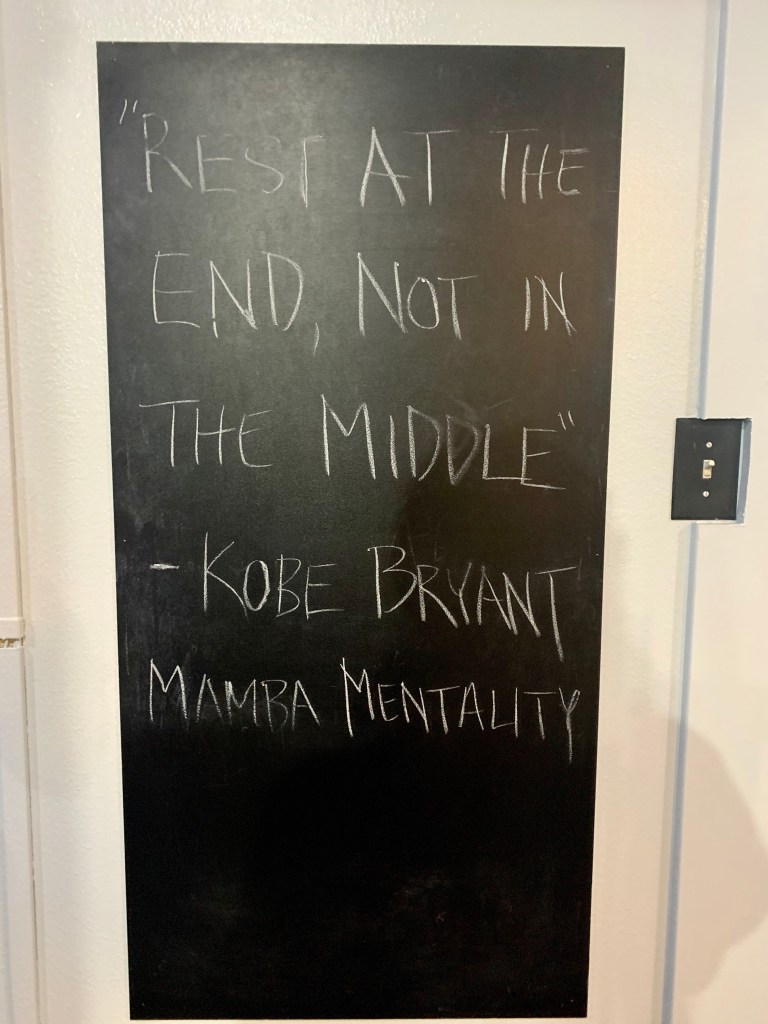 "REST AT THE
END, NOT IN
THE MIDDLE"
- KOBE BRYANT
MAMBA MENTALITY